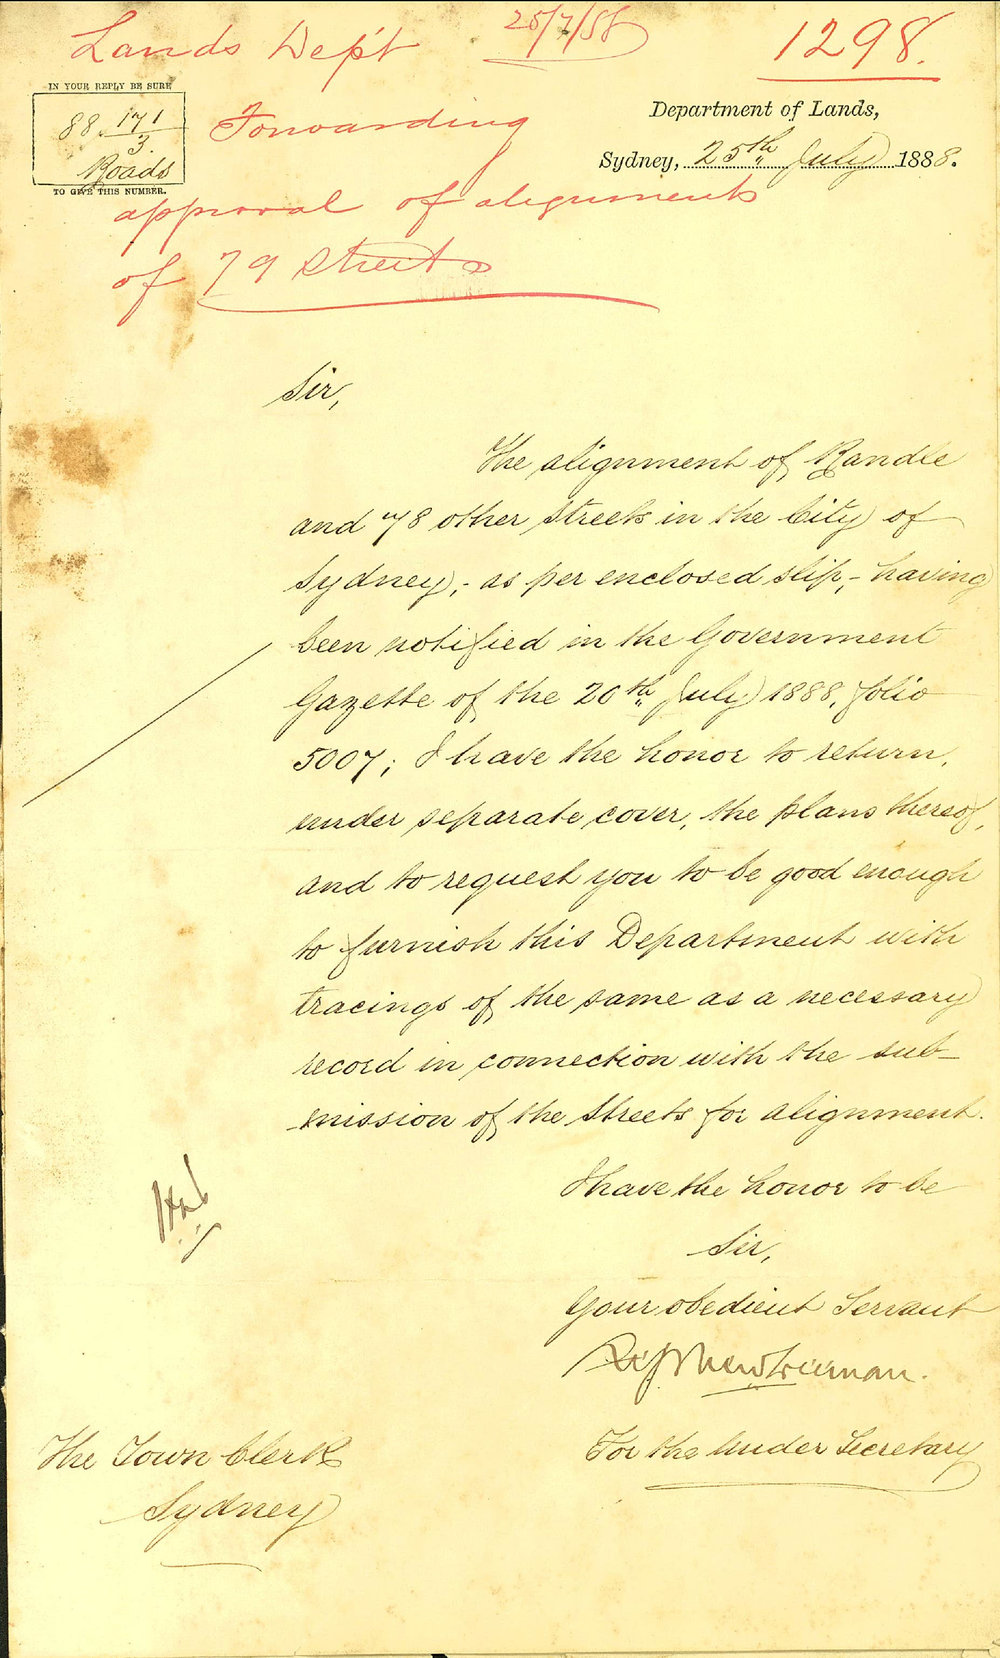 Lands Dept
25/7/88
1298.
IN YOUR REPLY BE SURE
88. 171
3.
Roads
TO GIVE THIS NUMBER.
Forwarding
approval of alignments
of 79 Streets
Department of Lands,
Sydney, 25th July 1888.
Sir,
The alignment of Randle
and 78 other streets in the City of
Sydney, - as per enclosed slip, - having
been notified in the Government
Gazette of the 20th July 1888, folio
5007; I have the honor to return,
under separate cover, the plans thereof,
and to request you to be good enough
to furnish this Department with
tracings of the same as a necessary
record in connection with the sub-
mission of the streets for alignment.
I have the honor to be
Sir,
Your obedient Servant
For the Under Secretary
The Town Clerk
Sydney